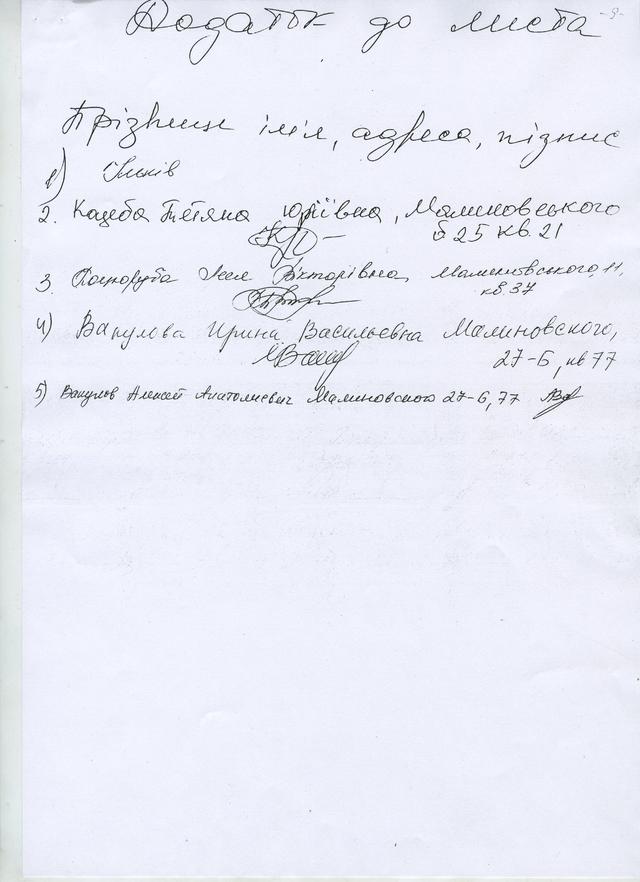 -9-
Додаток до листа
Прізвище ім'я, адреса, підпис
1)
2. Кацеба Тетяна Юріївна, Малиновського
б 25 кв. 21
3. Вікторівна, Малиновського, 11,
кв. 37
4) Вакулова Ирина Васильевна Малиновского,
27-Б, кв 77
5) Вакулов Алексей Анатолиевич Малиновского 27-Б, 77